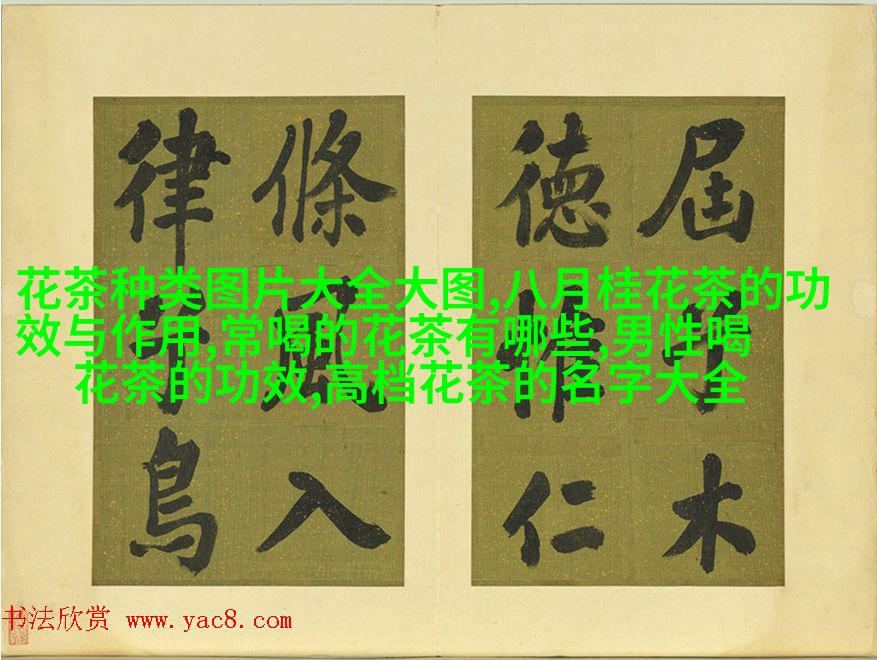 屆木
德惟仁
條風入
律鳥
花茶种类图片大全大图,八月桂花茶的功
效与作用,常喝的花茶有哪些,男性喝
花茶的功效,高档花茶的名字大全
书法欣赏 www.yac8.com